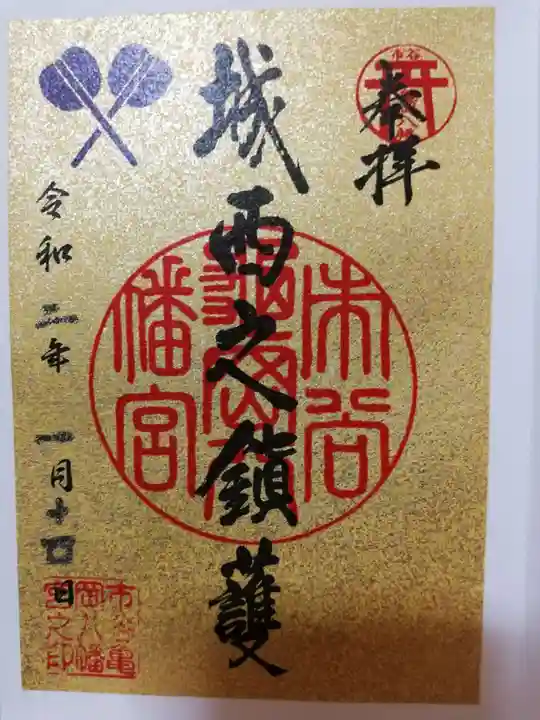 奉拝
城西之鎮護
市谷
亀岡八
幡宮
令和二年 一月十四日
市谷亀
岡八幡
宮之印